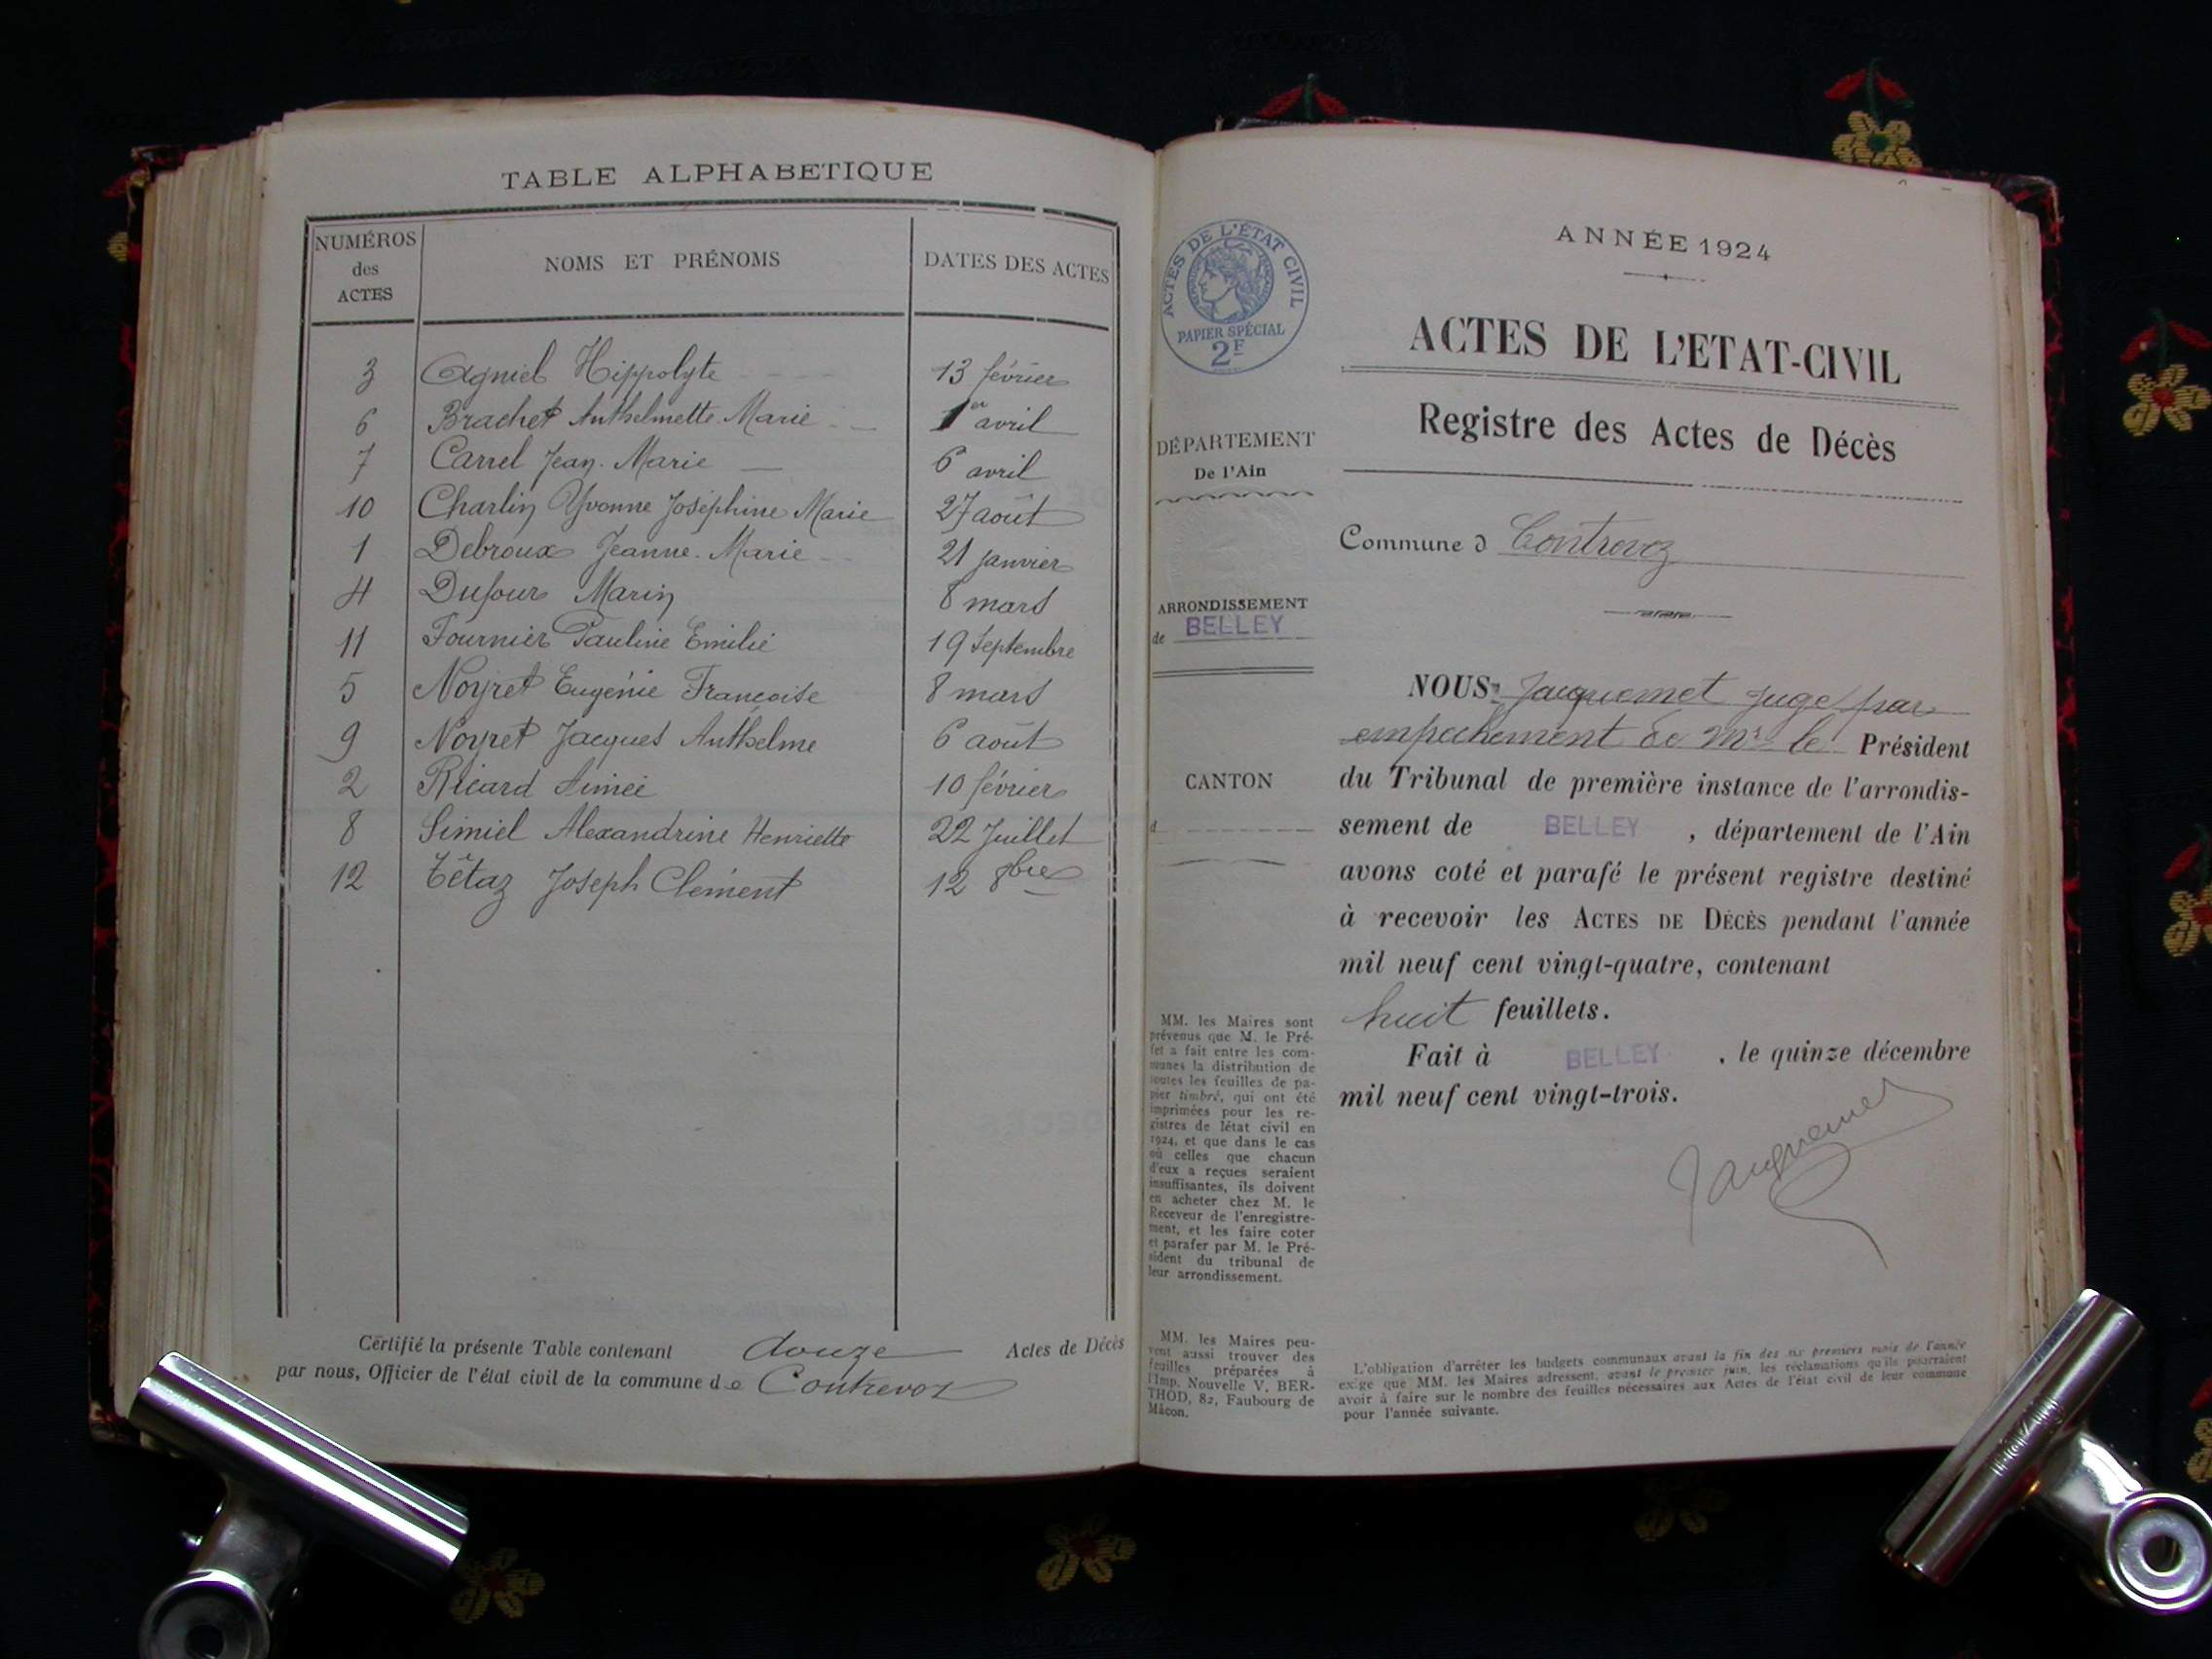 TABLE ALPHABETIQUE
NUMÉROS
des
ACTES
NOMS ET PRÉNOMS
DATES DES ACTES
3 Agniel Hippolyte 13 février
6 Brachet Anthelmette Marie 1er avril
7 Carrel Jean-Marie 6 avril
10 Charlin Yvonne Joséphine Marie 27 août
1 Debroux Jeanne-Marie 21 janvier
4 Dufour Marin 8 mars
11 Fournier Pauline Emilie 19 Septembre
5 Noyret Eugénie Françoise 8 mars
9 Noyret Jacques Anthelme 6 août
2 Ricard Aimée 10 février
8 Simiel Alexandrine Henriette 22 Juillet
12 Têtaz Joseph Clément 12 8bre
Certifié la présente Table contenant douze Actes de Décès
par nous, Officier de l'état civil de la commune de Contrevoz
ACTES DE L'ÉTAT CIVIL
PAPIER SPÉCIAL
2F
DÉPARTEMENT
De l'Ain
ARRONDISSEMENT
de BELLEY
CANTON
d
MM. les Maires sont
prévenus que M. le Pré-
fet a fait entre les com-
munes la distribution de
toutes les feuilles de pa-
pier timbré, qui ont été
imprimées pour les re-
gistres de létat civil en
1924, et que dans le cas
où celles que chacun
d'eux a reçues seraient
insuffisantes, ils doivent
en acheter chez M. le
Receveur de l'enregistre-
ment, et les faire coter
et parafer par M. le Pré-
sident du tribunal de
leur arrondissement.
MM. les Maires peu-
vent aussi trouver des
feuilles préparées à
l'Imp. Nouvelle V. BER-
THOD, 82, Faubourg de
Mâcon.
ANNÉE 1924
ACTES DE L'ETAT-CIVIL
Registre des Actes de Décès
Commune d Contrevoz
NOUS, Jacquemet juge par
empêchement de Mr le Président
du Tribunal de première instance de l'arrondis-
sement de BELLEY, département de l'Ain
avons coté et parafé le présent registre destiné
à recevoir les ACTES DE DÉCÈS pendant l'année
mil neuf cent vingt-quatre, contenant
huit feuillets.
Fait à BELLEY, le quinze décembre
mil neuf cent vingt-trois.
Jacquemet
L'obligation d'arrêter les budgets communaux avant la fin des six premiers mois de l'année
exige que MM. les Maires adressent, avant le premier juin, les réclamations qu'ils pourraient
avoir à faire sur le nombre des feuilles nécessaires aux Actes de l'état civil de leur commune
pour l'année suivante.